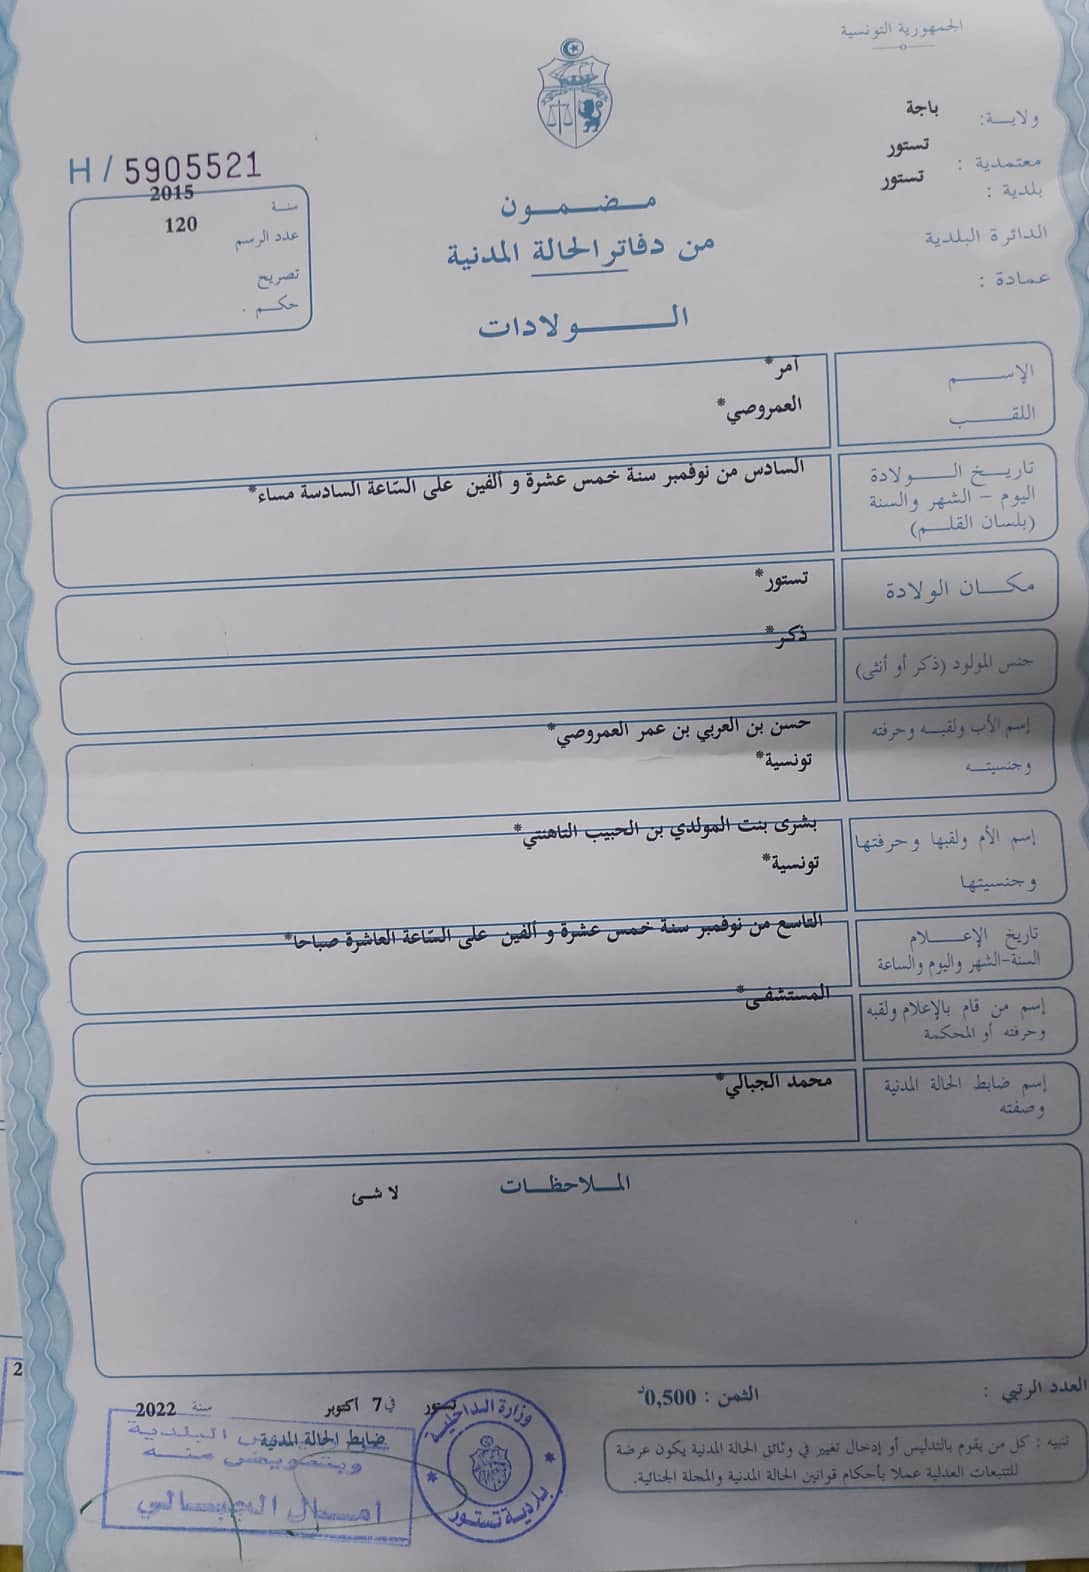 الجمهورية التونسية
ولايـــة: باجة
معتمدية : تستور
بلدية : تستور
الدائرة البلدية
عمادة :
H / 5905521
سنـة 2015
عدد الرسم 120
تصريح
حكـــم .
مـــضـــمـــون
من دفاتر الحالة المدنية
الــــــــولادات
الإســـــــم آمر*
اللقـــــب العمروصي*
تاريــخ الــــــولادة
اليوم – الشهر والسنة
(بلسان القلـــم)
السادس من نوفمبر سنة خمس عشرة و ألفين على السّاعة السادسة مساء*
مكـــان الولادة تستور*
جنس المولود (ذكر أو أنثى) ذكر*
إسم الأب ولقبـــه وحرفته حسن بن العربي بن عمر العمروصي*
وجنسيتـــه تونسية*
إسم الأم ولقبها وحرفتها بشرى بنت المولدي بن الحبيب التاهنتي*
وجنسيتها تونسية*
تاريخ الإعــــــلام
السنة-الشهر واليوم والساعة
التاسع من نوفمبر سنة خمس عشرة و ألفين على السّاعة العاشرة صباحا*
إسم من قام بالإعلام ولقبه
وحرفته أو المحكمة
المستشفى*
إسم ضابط الحالة المدنية
وصفته
محمد الجبالي*
المــلاحظــات
لا شئ
العدد الرتبي :
الثمن : 0,500د
تنبيه : كل من يقوم بالتدليس أو إدخال تغيير في وثائق الحالة المدنية يكون عرضة
للتتبعات العدلية عملا بأحكام قوانين الحالة المدنية والمجلة الجنائية.
تستور في 7 اكتوبر سنة 2022
ضابط الحالة المدنية
البلدية
وبتفويض منه
امـــال الجبـــالي
وزارة الداخلية
بلدية تستور
2